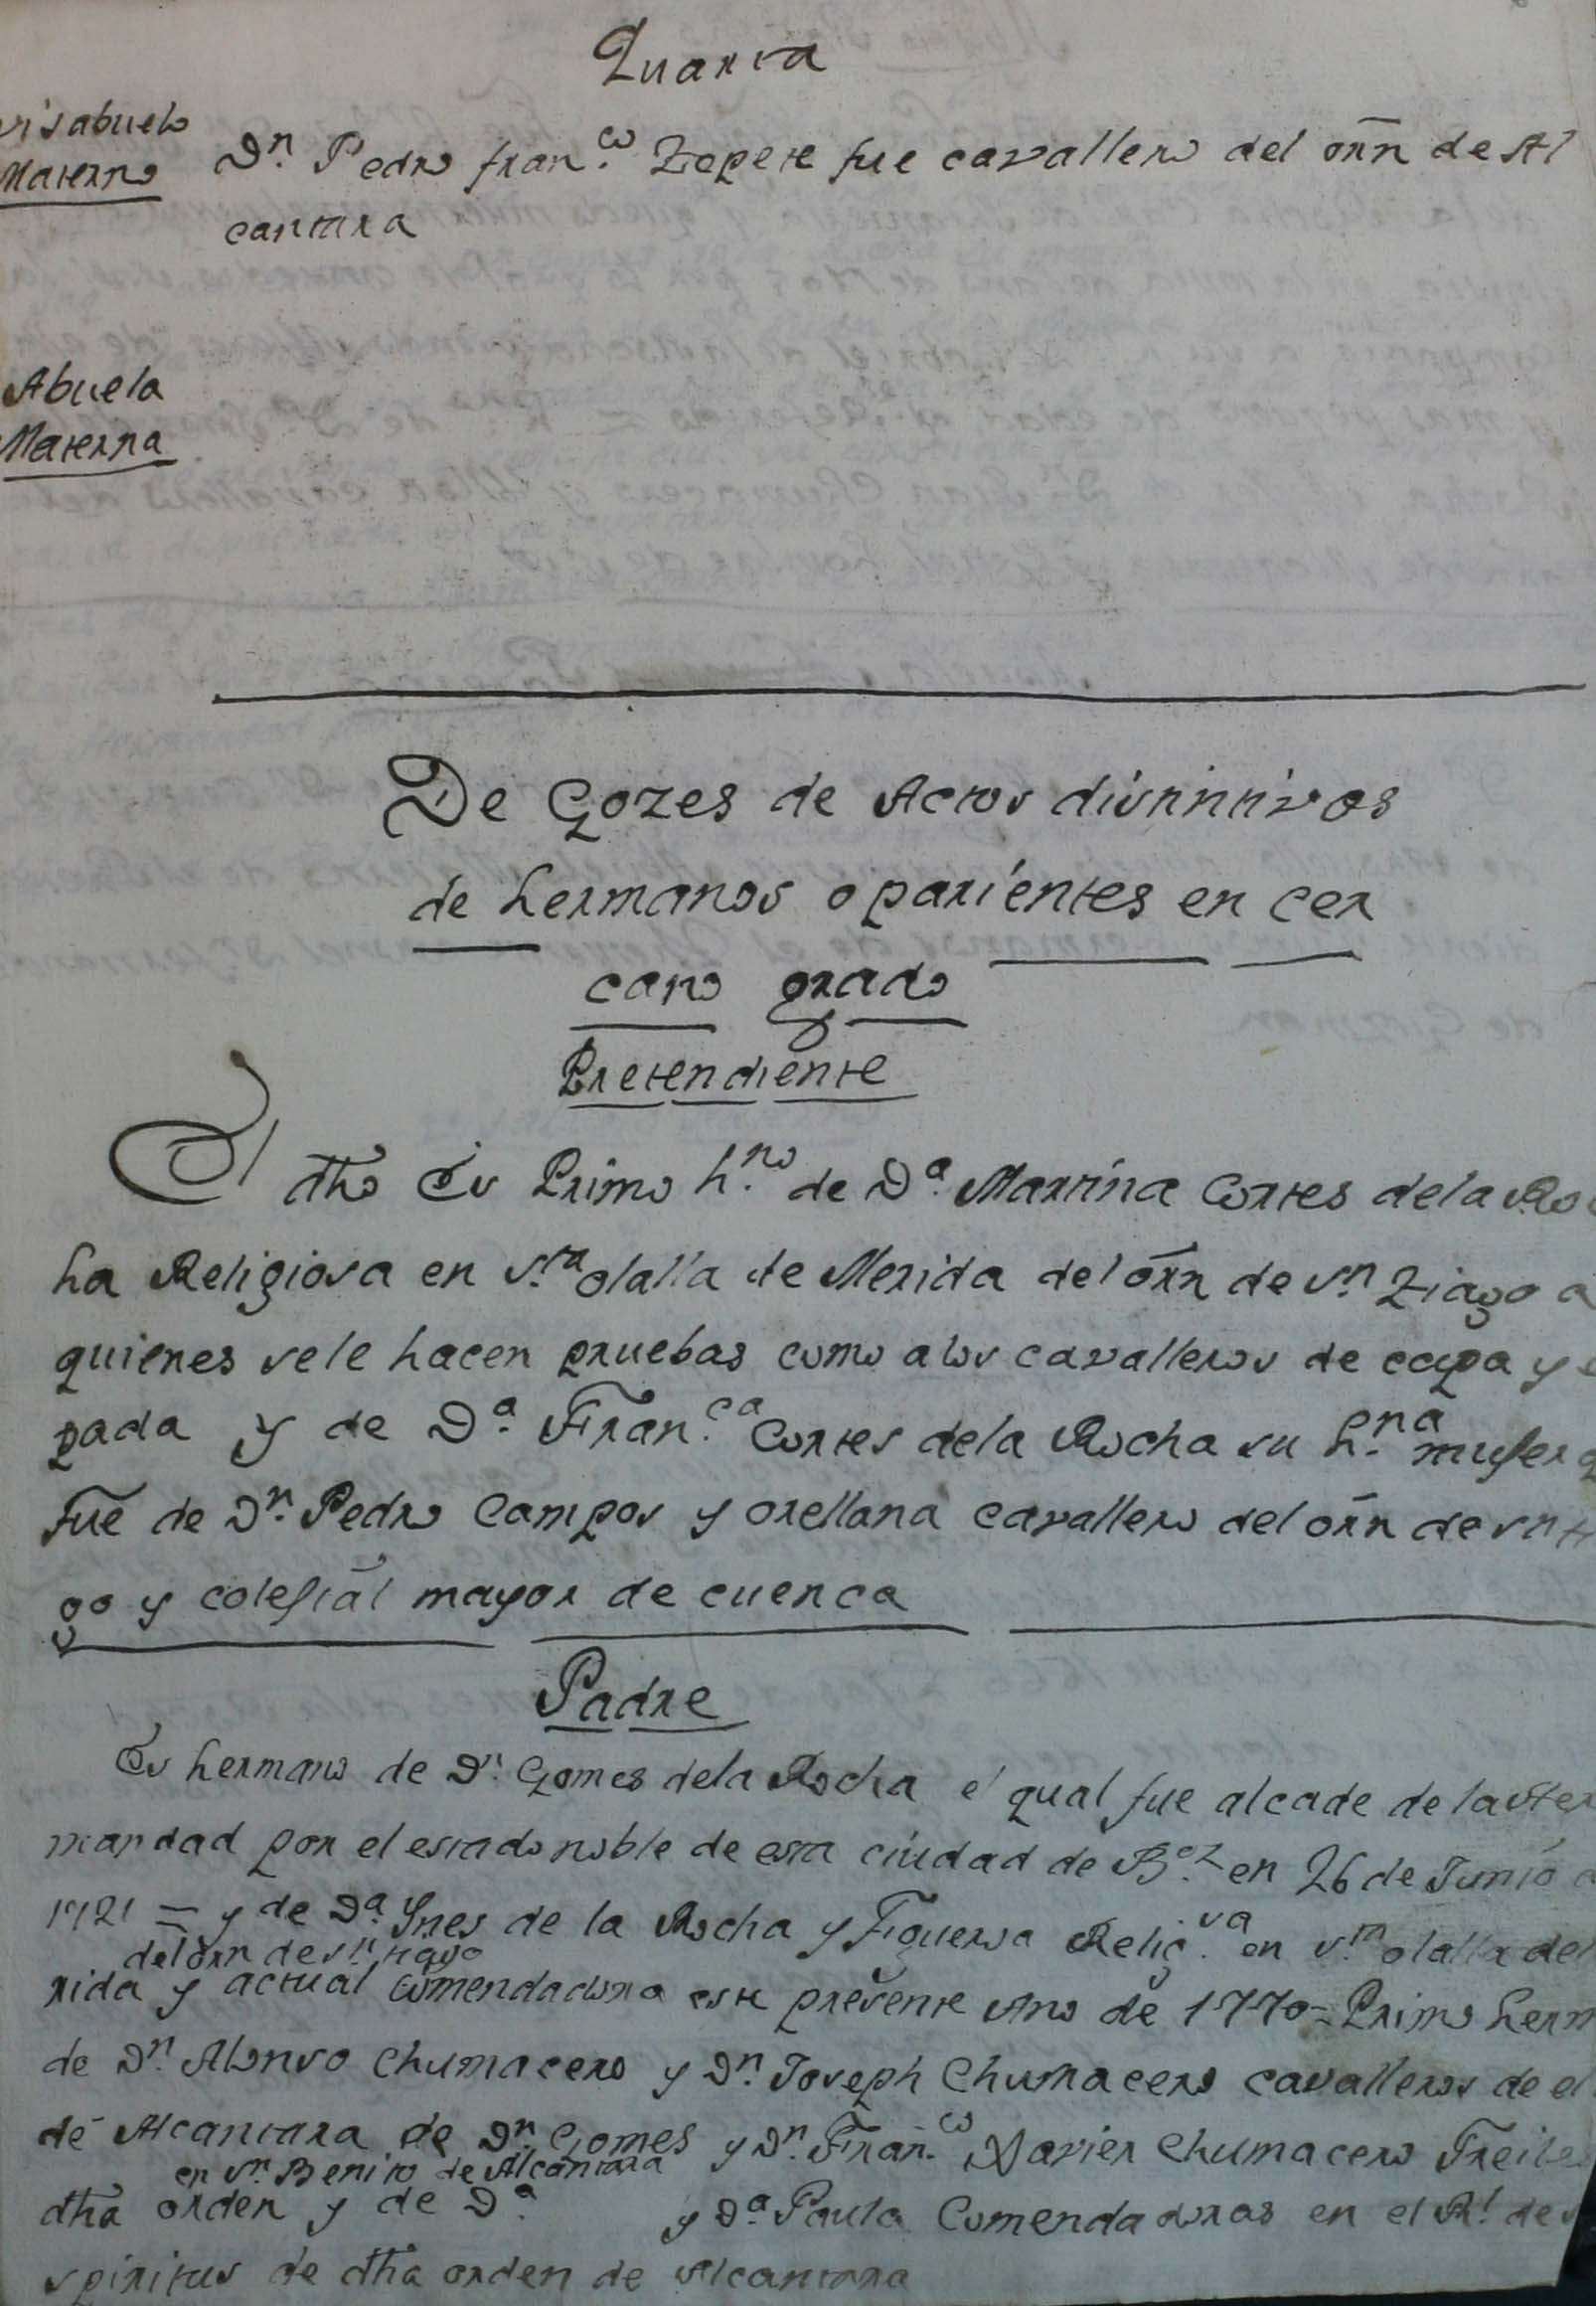 Quarta
visabuelo
Materno
Dn. Pedro franco. Zepete fue cavallero del orn de Al
cantara
Abuela
Materna
De Gozes de Actos distintivos
de hermanos o parientes en cer
cano grado
Pretendiente
El dho Es Primo hno. de Da. Martina Cortes dela Roc
ha Religiosa en sta. olalla de Merida del orn de sn. Tiago a
quienes sele hacen pruebas como alos cavalleros de capa y e
pada y de Da. Franca. Cortes dela Rocha su hna. muger q
fue de Dn. Pedro Campos y orellana cavallero del orn de sn ti
go y colegial mayor de cuenca
Padre
Es hermano de Dn. Gomes dela Rocha el qual fue alcade de la Her
mandad por el estado noble de esta ciudad de Bez. en 26 de Junio d
1721 = y de Da. Ynes de la Rocha y Figueroa Religsa. en sta. olalla de Me
del orn de sn. tiago
rida y actual comendadora este presente Ano de 1770 = Primo herm
de Dn. Alonso Chumacero y Dn. Joseph Chumacero cavalleros de el
de Alcantara de Dn. Gomes y Dn. Franco. Xavier Chumacero Freile
en sn. Benito de Alcantara
dha orden y de Da. y Da. Paula Comendadoras en el Rl. de s
spiritus de dha orden de Alcantara